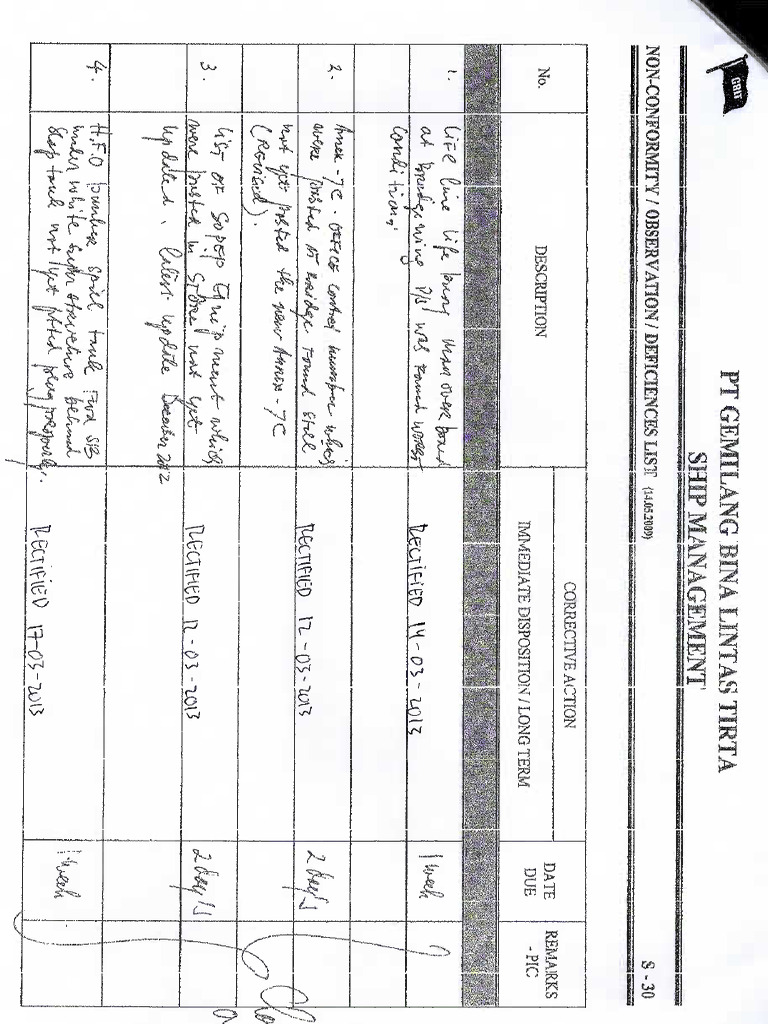 GBLT
PT GEMILANG BINA LINTAS TIRTA
SHIP MANAGEMENT
NON-CONFORMITY / OBSERVATION / DEFICIENCES LIST (14.05.2009)
S - 30
No.
DESCRIPTION
CORRECTIVE ACTION
IMMEDIATE DISPOSITION / LONG TERM
DATE DUE
REMARKS - PIC
1.
Life line life buoy man over board
at bridge wing P/S was found worst
condition.
RECTIFIED 14-03-2013
1 week
2.
Annex-7C. Office contact number which
were posted at bridge found still
not yet posted the new Annex-7C
(Revised).
RECTIFIED 12-03-2013
2 day/s
3.
List of Sopep Equipment which
were posted in store not yet
updated. Latest update December 2012
RECTIFIED 12-03-2013
2 day/s
4.
H.F.O bunker spill tank S/B
under white super structure behind
slop tank not yet fitted plug properly.
RECTIFIED 17-03-2013
1 week